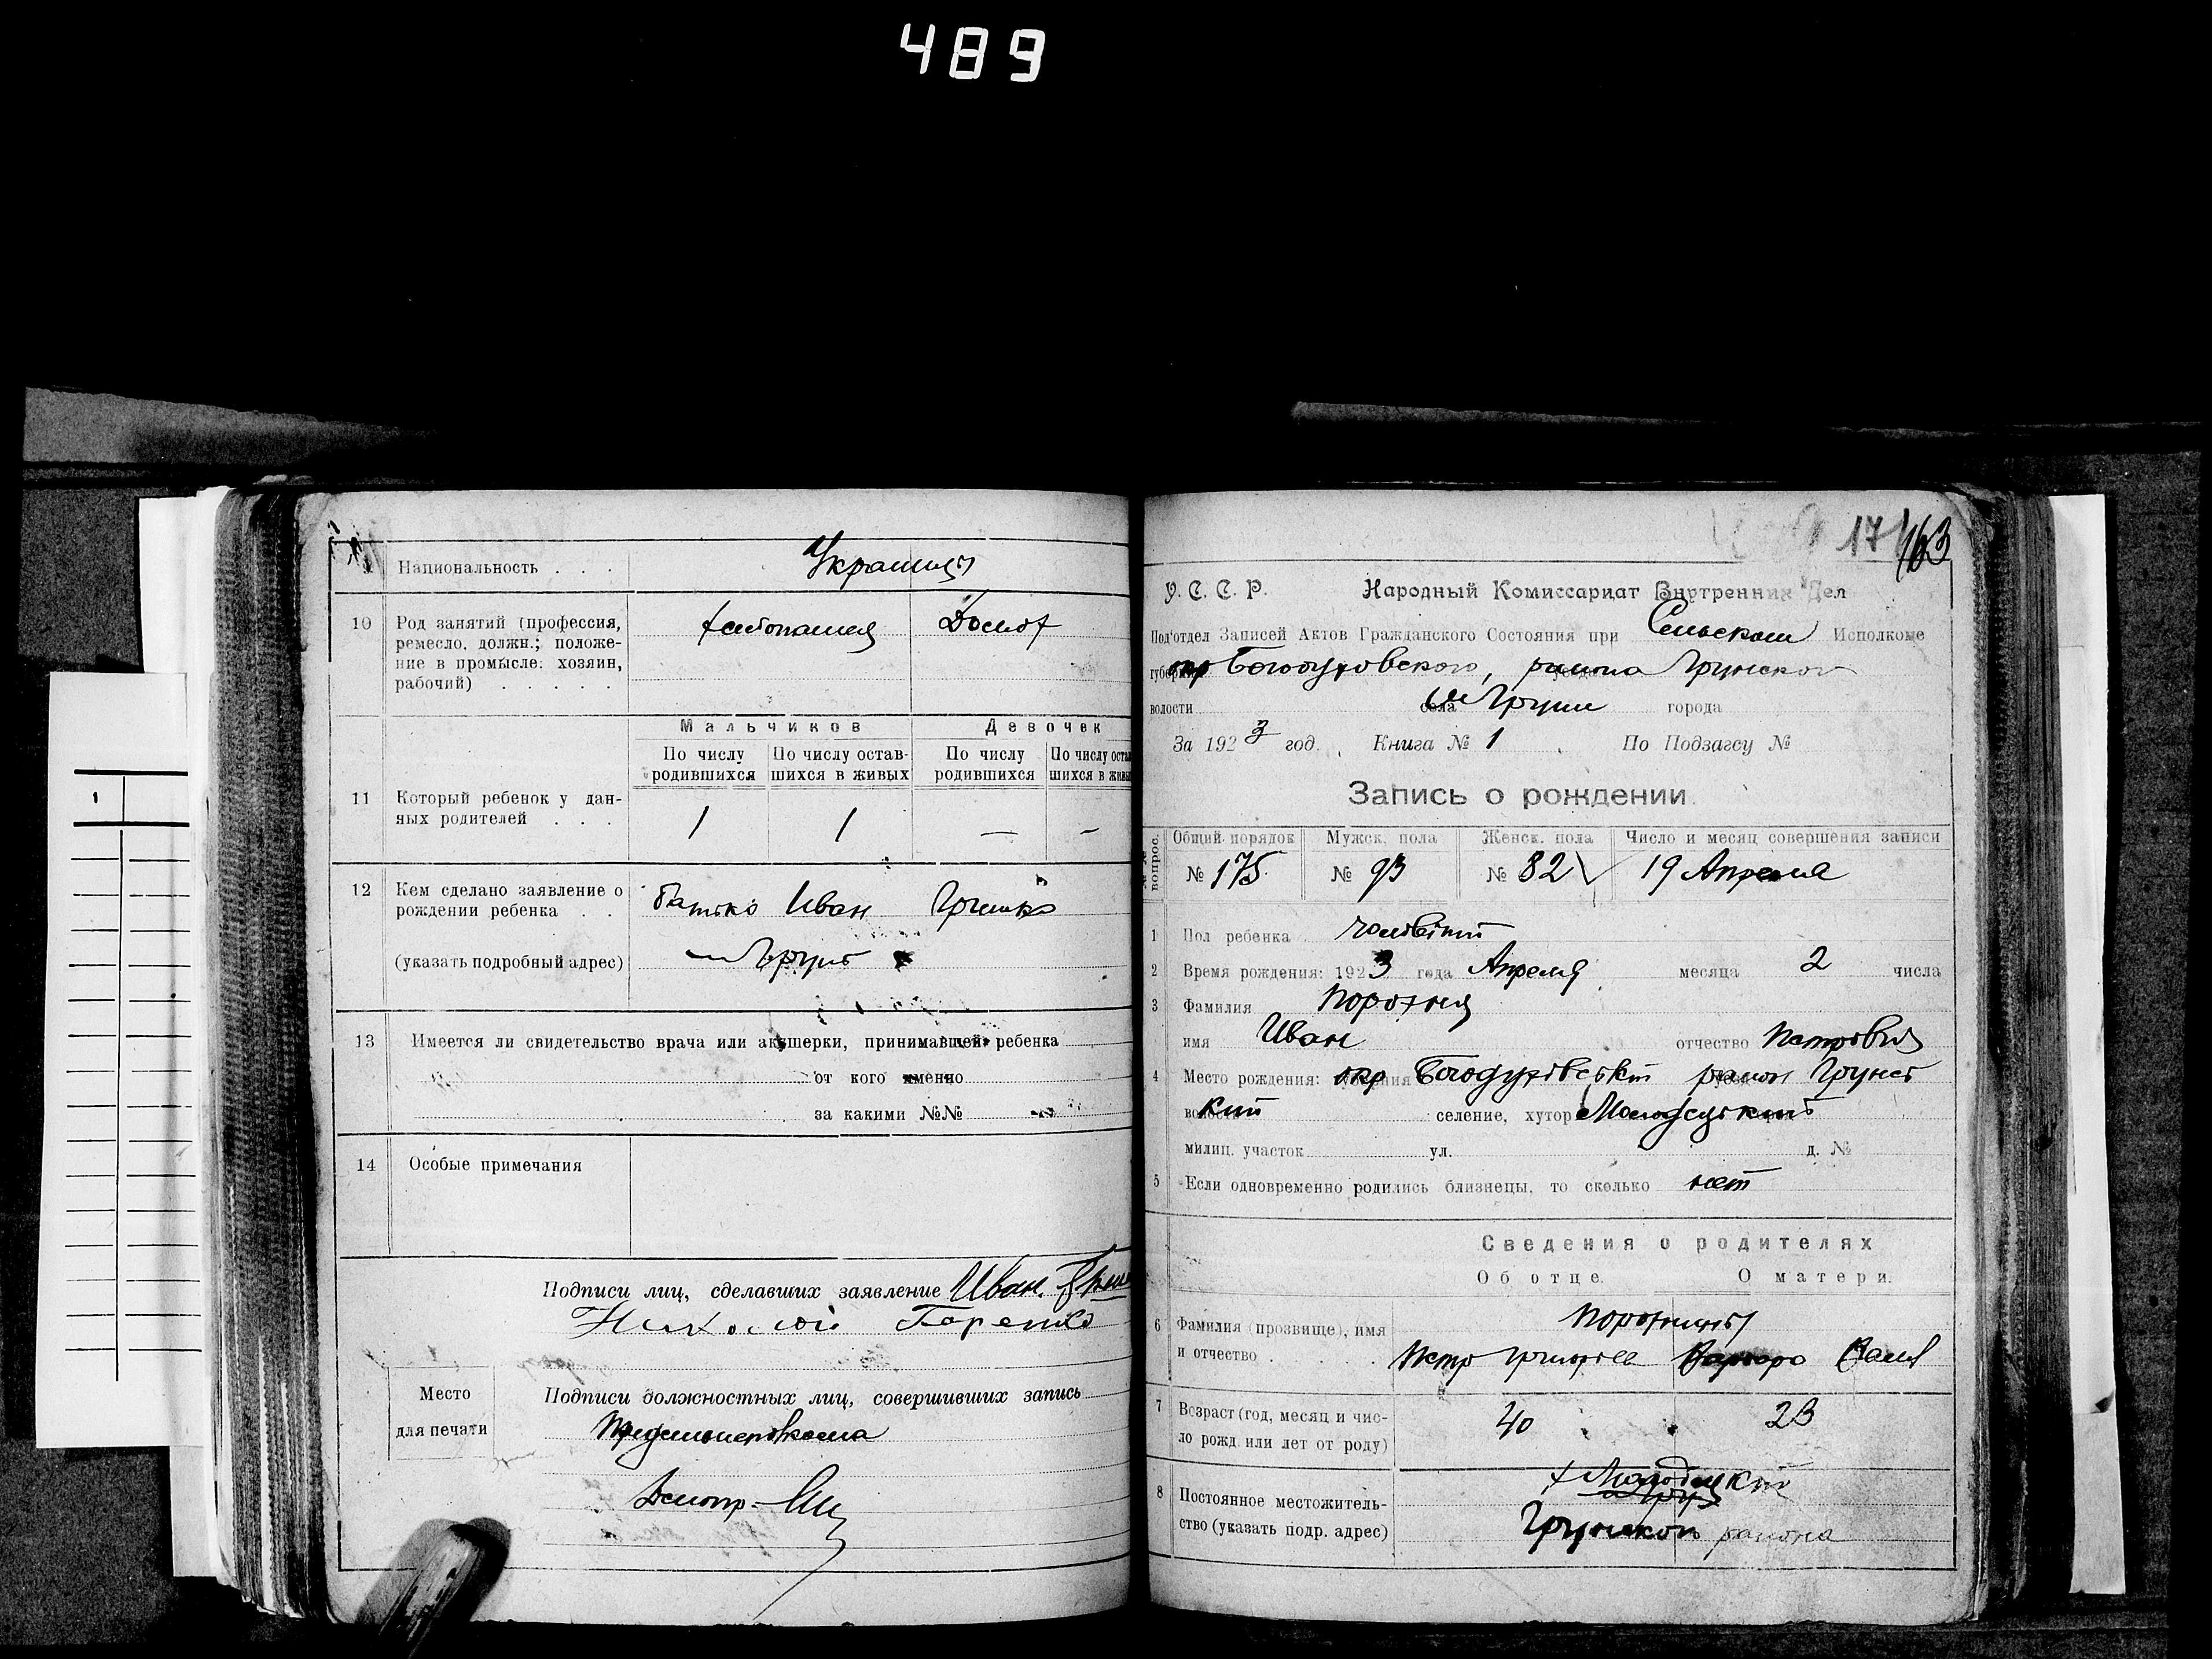 489
Национальность . . . Украинцы
10 Род занятий (профессия,
ремесло, должн.; положе-
ние в промысле: хозяин,
рабочий) . . . . .
Домох
Мальчиков Девочек
По числу родившихся
По числу остав-шихся в живых
По числу родившихся
По числу остав
шихся в живы
11 Который ребенок у дан-
ных родителей . . .
1 1 — -
12 Кем сделано заявление о
рождении ребенка . .
(указать подробный адрес)
батько Иван Гришко
Грунь
13 Имеется ли свидетельство врача или акушерки, принимавшей ребенка
от кого именно
за какими №№
14 Особые примечания
Подписи лиц, сделавших заявление Иван
Николай
Место
для печати
Подписи должностных лиц, совершивших запись
17
163
У. С. С. Р. Народный Комиссариат Внутренних Дел
Под'отдел Записей Актов Гражданского Состояния при Сельском Исполкоме
губернии окр Богодуховского, района Грунской
волости села Груни города
За 1923 год. Книга № 1 По Подзагсу №
Запись о рождении
№№ вопрос.
Общий порядок Мужск. пола Женск. пола Число и месяц совершения записи
№ 175 № 93 № 82 19 Апреля
1 Пол ребенка чоловічий
2 Время рождения: 1923 года Апреля месяца 2 числа
3 Фамилия Порохня
имя Иван отчество Петрович
4 Место рождения: окр Богодуховский район Грунс
кий селение, хутор
милиц. участок ул. д. №
5 Если одновременно родились близнецы, то сколько нет
Сведения о родителях
Об отце. О матери.
6 Фамилия (прозвище), имя
и отчество . . . .
Порохнины
Петр Григорьев Варвара Васил
7 Возраст (год, месяц и чис-
ло рожд. или лет от роду)
40 23
8 Постоянное местожитель-
ство (указать подр. адрес)
Грунского района
1